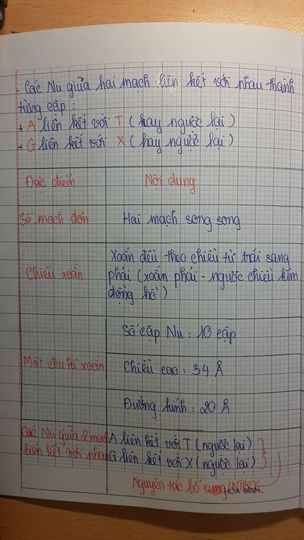 - Các Nu giữa hai mạch liên kết với nhau thành
từng cặp :
+ A liên kết với T ( hay ngược lại )
+ G liên kết với X ( hay ngược lại )
Đặc điểm
Nội dung
Số mạch đơn
Hai mạch song song
Chiều xoắn
Xoắn đều theo chiều từ trái sang
phải ( xoắn phải - ngược chiều kim
đồng hồ )
Một chu kì xoắn
Số cặp Nu : 10 cặp
Chiều cao : 34 Å
Đường kính : 20 Å
Các Nu giữa 2 mạch
liên kết với nhau
A liên kết với T ( ngược lại )
G liên kết với X ( ngược lại )
Nguyên tắc bổ sung